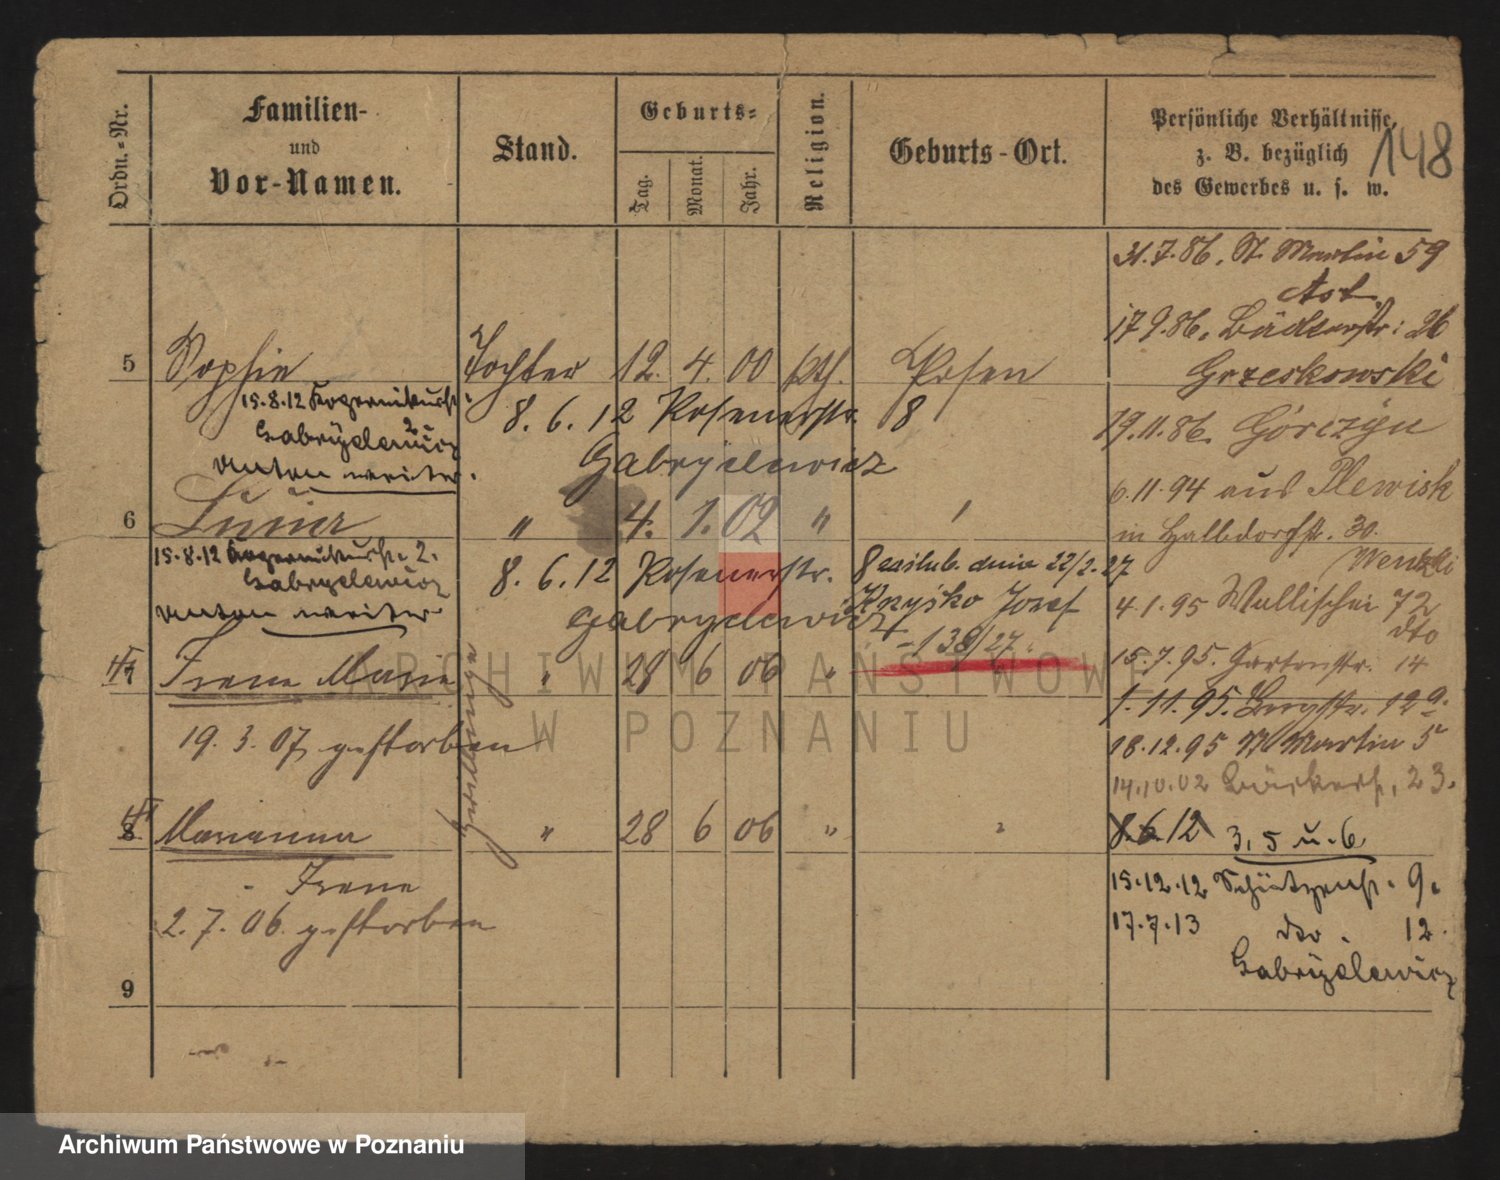 Ordn.-Nr.
Familien-
und
Vor-Namen.
Stand.
Geburts-
Tag.
Monat.
Jahr.
Religion.
Geburts-Ort.
Persönliche Verhältnisse,
z. B. bezüglich
des Gewerbes u. s. w.
148
31.7.86. St. Martin 59
17.9.86. 26
Grzeskowski
19.11.86. Górczyn
6.11.94 aus Plewisk
in Halbdorfstr. 30.
4.1.95 Wallischei 72
dto
15.7.95. Gartenstr. 14
1.11.95. 12
18.12.95 St Martin 5
14.10.02 23.
8.6.12 3, 5 u. 6
15.12.12 Schützenstr. 9.
17.7.13 dto. 12.
Gabryelewicz
5 Sophie Tochter 12. 4. 00 kth. Posen
15.8.12 2
8.6.12 Posenerstr. 8
Gabryelewicz
Gabryelewicz
Anton weiter.
6 4. 1. 02 "
15.8.12 2.
8.6.12 Posenerstr. 8 zaślub. dnia 22/2.27
Gabryelewicz
Gabryelewicz Knyśko Józef
Anton weiter
138/27
7 Irene Marie " 28 6 06 "
19.3.07 gestorben
8 Marianna " 28 6 06 " "
Irene
2.7.06. gestorben
9
ARCHIWUM PAŃSTWOWE
W POZNANIU
Archiwum Państwowe w Poznaniu